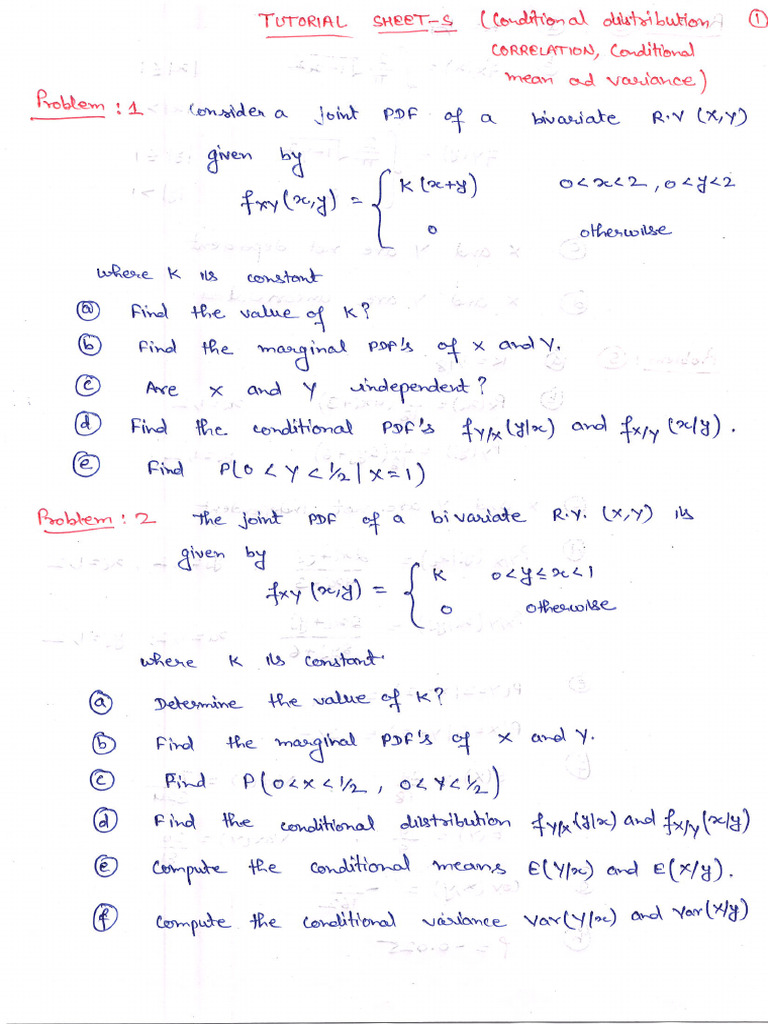 TUTORIAL SHEET-5 (Conditional distribution ①
CORRELATION, Conditional
mean ad variance)
Problem: 1 Consider a joint PDF of a bivariate R.V (X,Y)
given by
fxy(x,y) = { K(x+y) 0<x<2, 0<y<2
0 otherwise
where K is constant
ⓐ Find the value of K?
ⓑ Find the marginal PDF's of X and Y.
ⓒ Are X and Y independent?
ⓓ Find the conditional PDF's fY/X(y/x) and fX/Y(x/y).
ⓔ Find P(0 < Y < 1/2 | X=1)
Problem: 2 The joint PDF of a bivariate R.V. (X,Y) is
given by
fXY(x,y) = { K 0<y≤x<1
0 otherwise
where K is constant.
ⓐ Determine the value of K?
ⓑ Find the marginal PDF's of X and Y.
ⓒ Find P(0<X<1/2, 0<Y<1/2)
ⓓ Find the conditional distribution fY/X(y/x) and fX/Y(x/y)
ⓔ Compute the conditional means E(Y/x) and E(X/y).
ⓕ Compute the conditional variance Var(Y/x) and Var(X/y)